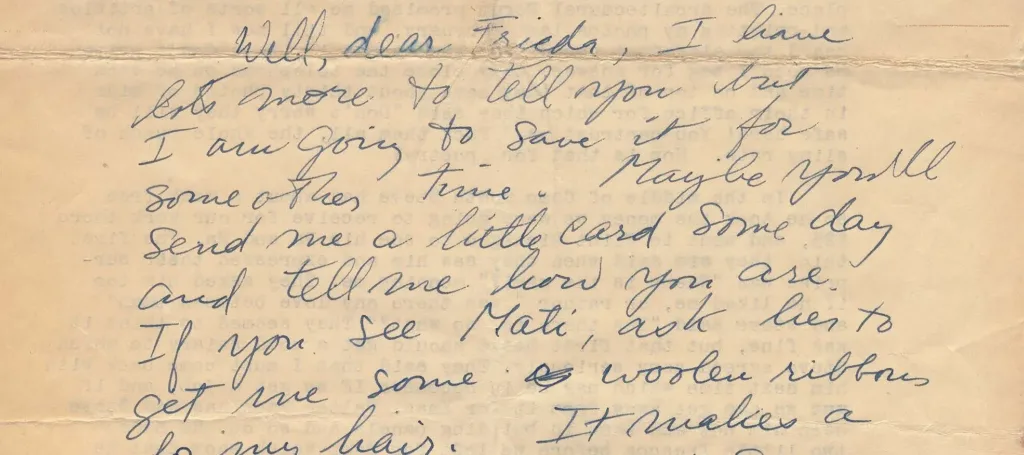 Well, dear Frieda, I have
lots more to tell you but
I am going to save it for
some other time. Maybe you'll
send me a little card some day
and tell me how you are.
If you see Mati, ask her to
get me some woolen ribbons
my hair. It makes a